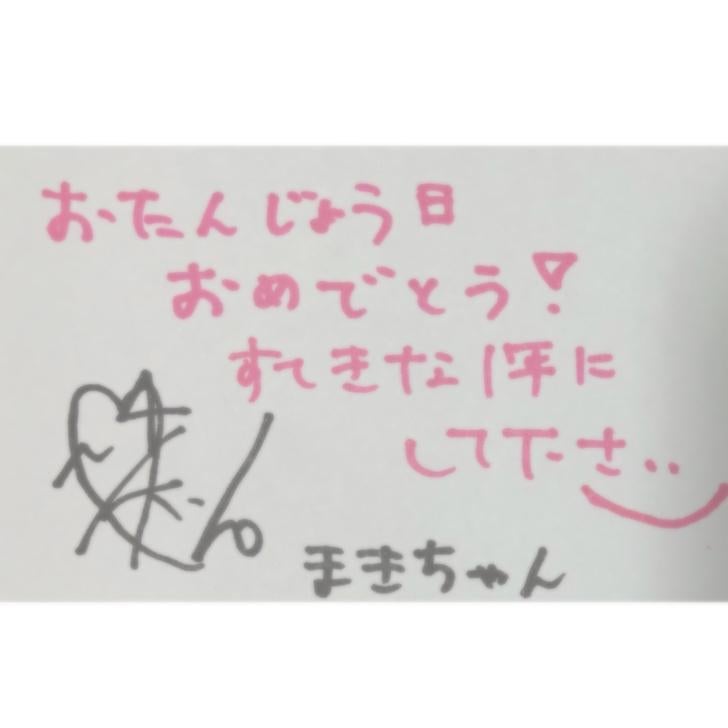 おたんじょう日
おめでとう!
すてきな1年に
して下さい
まきちゃん